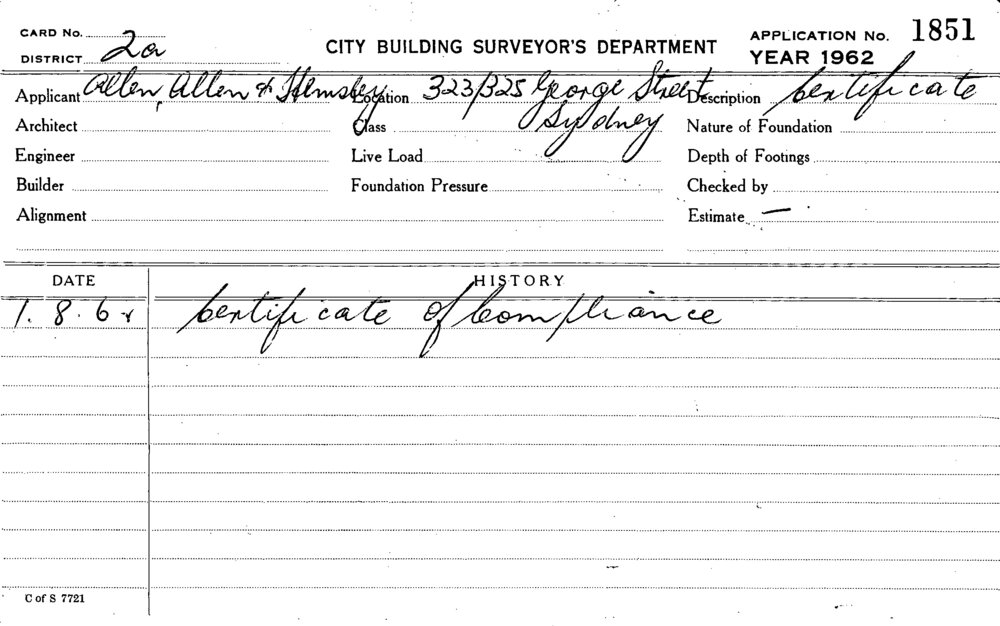 CARD No.
DISTRICT 2a
CITY BUILDING SURVEYOR'S DEPARTMENT
APPLICATION No. 1851
YEAR 1962
Applicant Allen, Allen & Hemsley Location 323/325 George Street Description Certificate
Architect Class Sydney Nature of Foundation
Engineer Live Load Depth of Footings
Builder Foundation Pressure Checked by
Alignment Estimate —
DATE HISTORY
1. 8. 62 Certificate of Compliance
C of S 7721